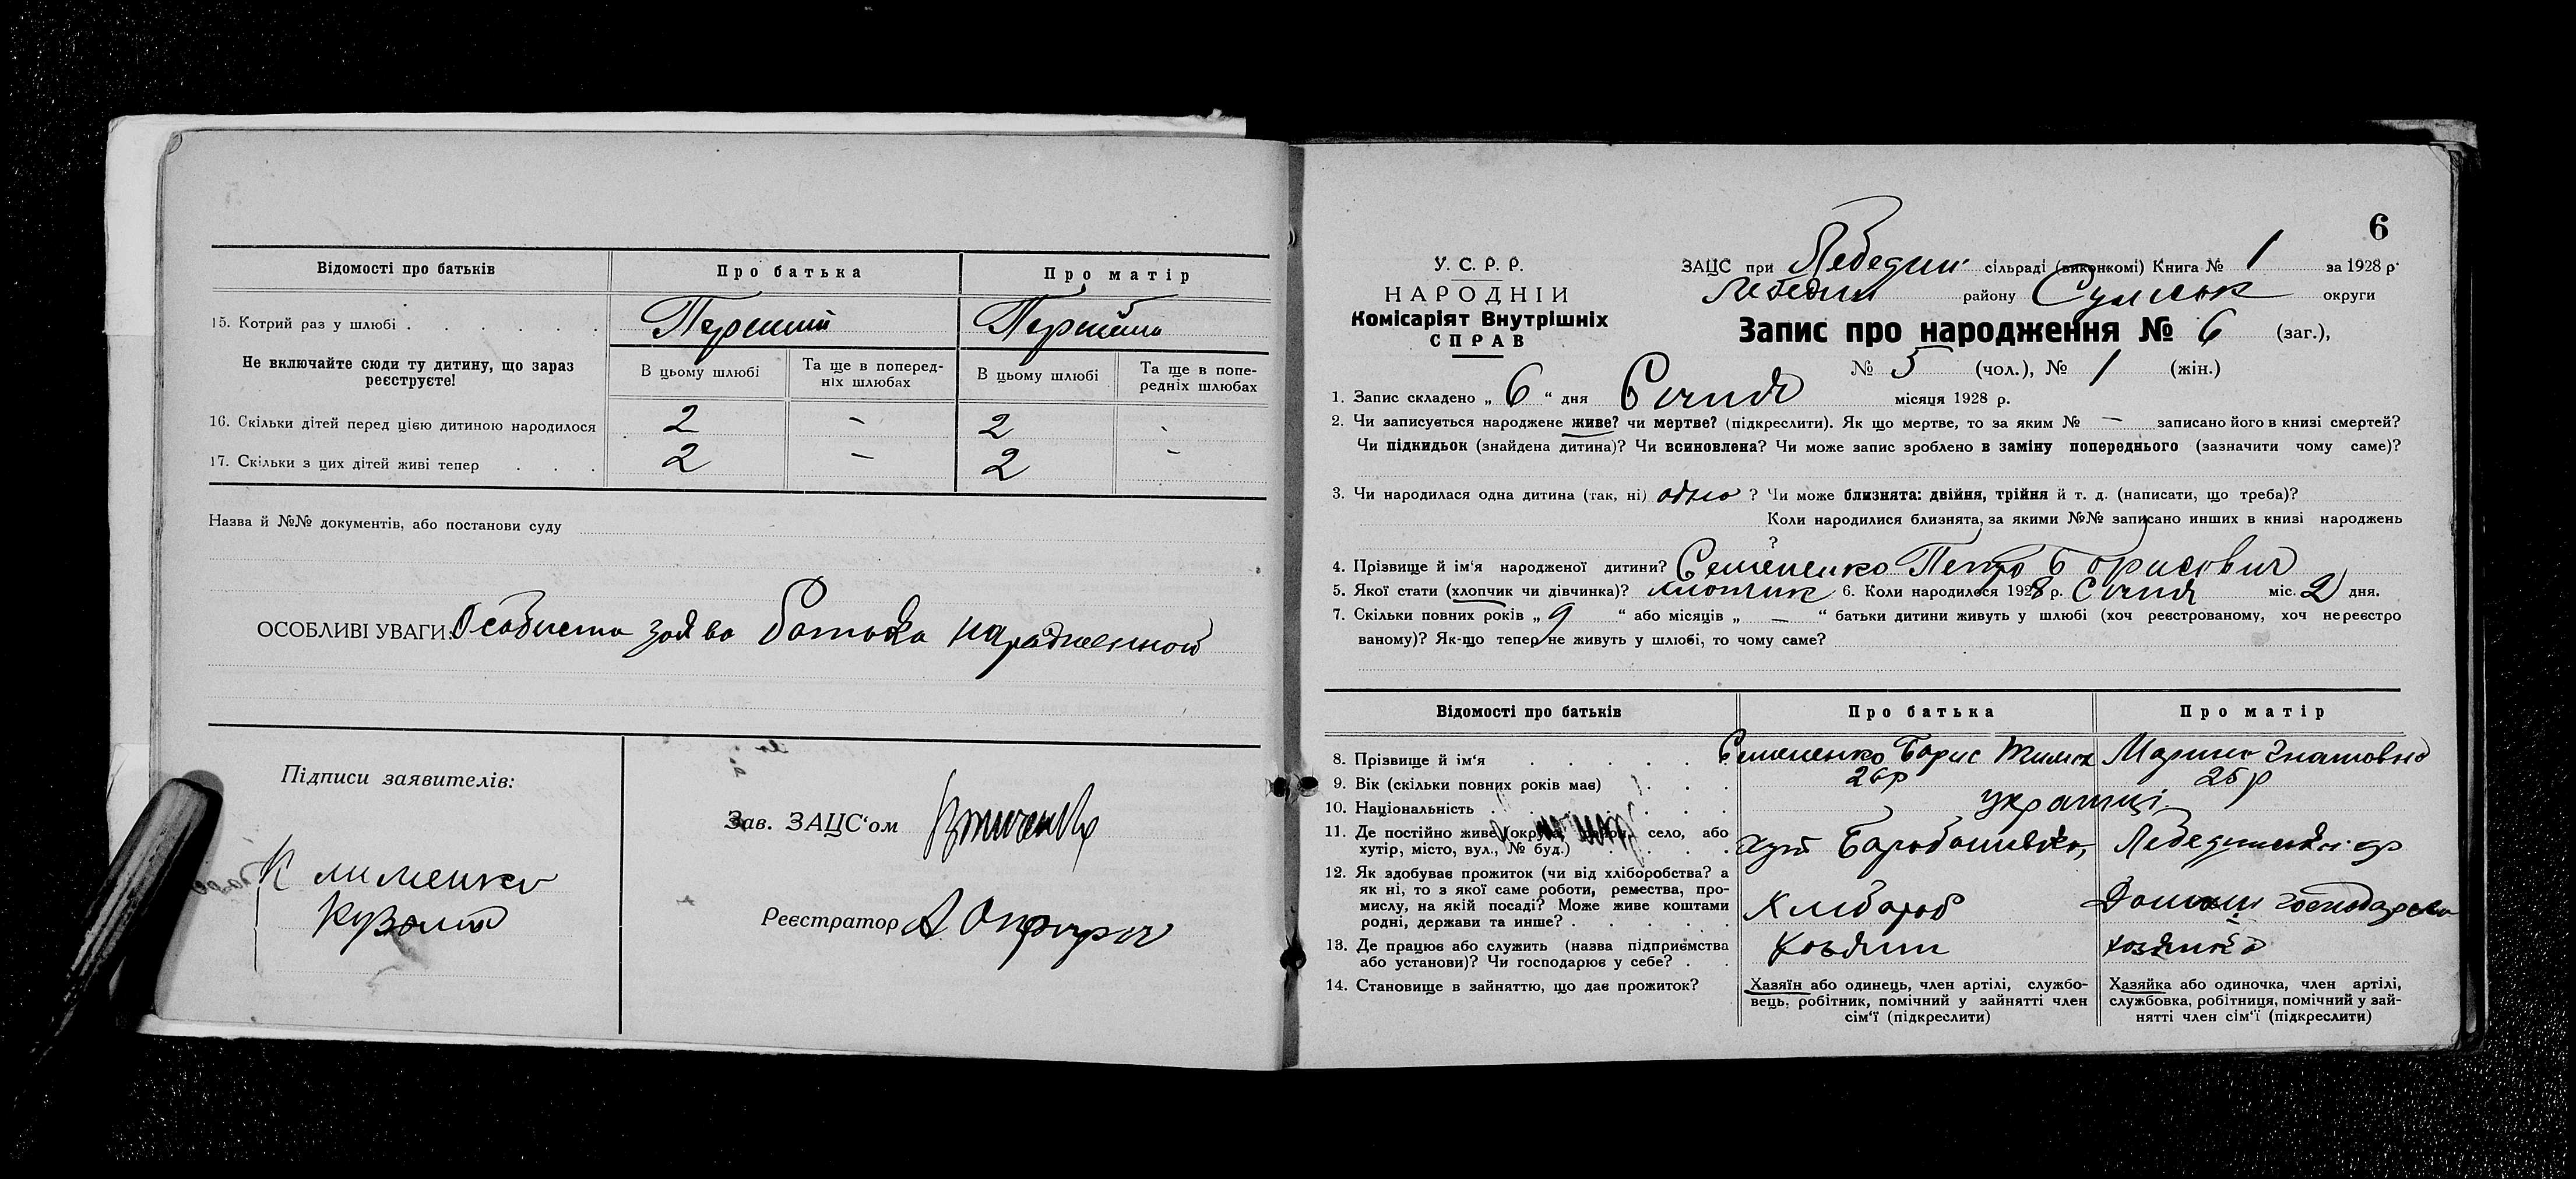 Відомості про батьків
Про батька
Про матір
15. Котрий раз у шлюбі
Перший
Не включайте сюди ту дитину, що зараз реєструєте!
В цьому шлюбі
Та ще в поперед-
ніх шлюбах
В цьому шлюбі
Та ще в попе-
редніх шлюбах
16. Скільки дітей перед цією дитиною народилося
2 - 2 -
17. Скільки з цих дітей живі тепер
2 - 2 -
Назва й №№ документів, або постанови суду
ОСОБЛИВІ УВАГИ: Особиста заява батька
Підписи заявителів:
Клименко
Кузьма
Зав. ЗАЦС'ом
Реєстратор
6
У. С. Р. Р.
НАРОДНІЙ
Комісаріят Внутрішніх
СПРАВ
ЗАЦС при Лебедин сільраді (виконкомі) Книга № 1 за 1928 р.
Лебедин району Сумськ округи
Запис про народження № 6 (заг.),
№ 5 (чол.), № 1 (жін.)
1. Запис складено „ 6 “ дня Січня місяця 1928 р.
2. Чи записується народжене живе? чи мертве? (підкреслити). Як що мертве, то за яким № — записано його в книзі смертей?
Чи підкидьок (знайдена дитина)? Чи всиновлена? Чи може запис зроблено в заміну попереднього (зазначити чому саме)?
3. Чи народилася одна дитина (так, ні) одно ? Чи може близнята: двійня, трійня й т. д. (написати, що треба)?
Коли народилися близнята, за якими №№ записано инших в книзі народжень
?
4. Прізвище й ім'я народженої дитини? Семененко Петро Борисович
5. Якої стати (хлопчик чи дівчинка)? хлопчик 6. Коли народилося 1928 р. Січня міс. 2 дня.
7. Скільки повних років „ 9 “ або місяців „ — “ батьки дитини живуть у шлюбі (хоч реєстрованому, хоч нереєстро
ваному)? Як-що тепер не живуть у шлюбі, то чому саме?
Відомості про батьків
Про батька
Про матір
8. Прізвище й ім'я
Семененко Борис Тимох
Марина Гнатовна
9. Вік (скільки повних років має)
26р
25р
10. Національність
українці
11. Де постійно живе (округа, район, село, або
хутір, місто, вул., № буд.)
хут Барабашівка, Лебединськ. ор
12. Як здобуває прожиток (чи від хліборобства? а
як ні, то з якої саме роботи, ремества, про-
мислу, на якій посаді? Може живе коштами
родні, держави та инше?
Хлібороб
Домашн господарство
13. Де працює або служить (назва підприємства
або установи)? Чи господарює у себе?
Хозяїн
хозяйка
14. Становище в зайняттю, що дає прожиток?
Хазяїн або одинець, член артілі, службо-
вець, робітник, помічний у зайнятті член
сім'ї (підкреслити)
Хазяйка або одиночка, член артілі,
службовка, робітниця, помічний у зай-
нятті член сім'ї (підкреслити)